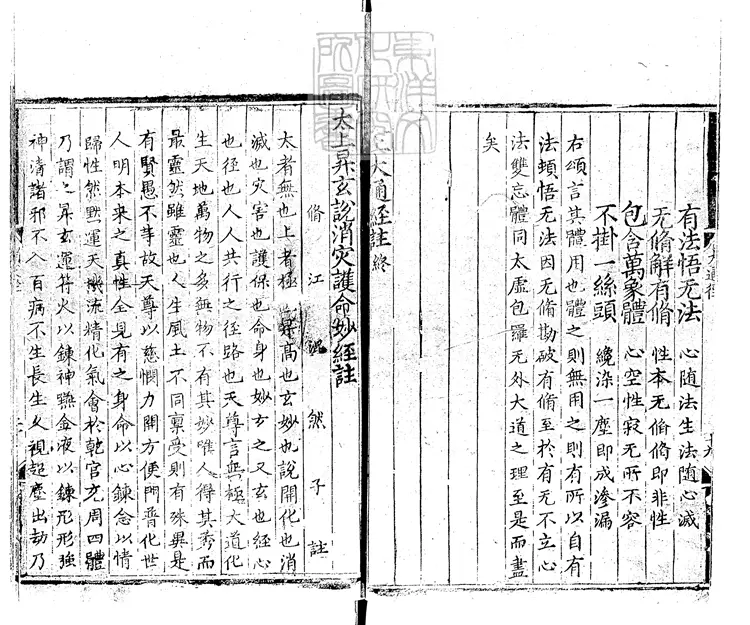 有法悟无法　心随法生法随心滅
无脩解有脩　性本无脩脩即非性
包含萬象體　心空性寂无所不容
不掛一絲頭　纔染一塵即成滲漏
右頌言其體用也體之則無用之則有所以自有
法頓悟无法因无脩勘破有脩至於有无不立心
法雙忘體同太虛包羅无外大道之理至是而盡
矣
大通經註終
太上昇玄說消灾護命妙經註
脩江混然子註
太者無也上者極也至高也玄妙也說開化也消
滅也灾害也護保也命身也妙玄之又玄也經心
也徑也人人共行之徑路也天尊言無極大道化
生天地萬物之多無物不有其妙唯人得其秀而
最靈然雖靈也人生風土不同稟受則有殊異是
有賢愚不等故天尊以慈憫力開方便門普化世
人明本來之真性全見有之身命以心鍊念以情
歸性然默運天機流精化氣會於乾宮充周四體
乃謂之昇玄運符火以鍊神燕金液以鍊形形強
神清諸邪不入百病不生長生久視超塵出劫乃